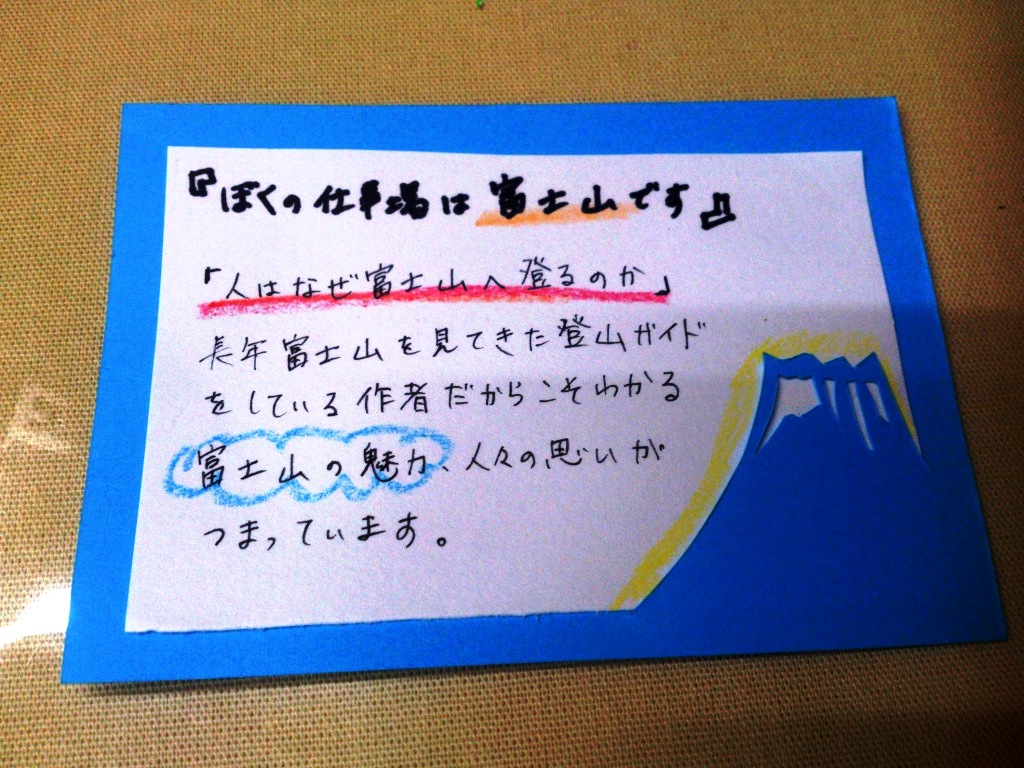 『ぼくの仕事場は富士山です』
「人はなぜ富士山へ登るのか」
長年富士山を見てきた登山ガイド
をしている作者だからこそわかる
富士山の魅力、人々の思いが
つまっています。